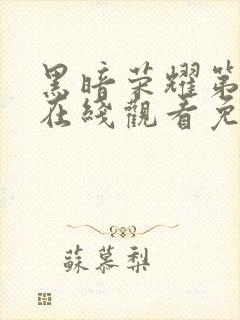 黑暗荣耀第
在线觀看免
蘇慕梨